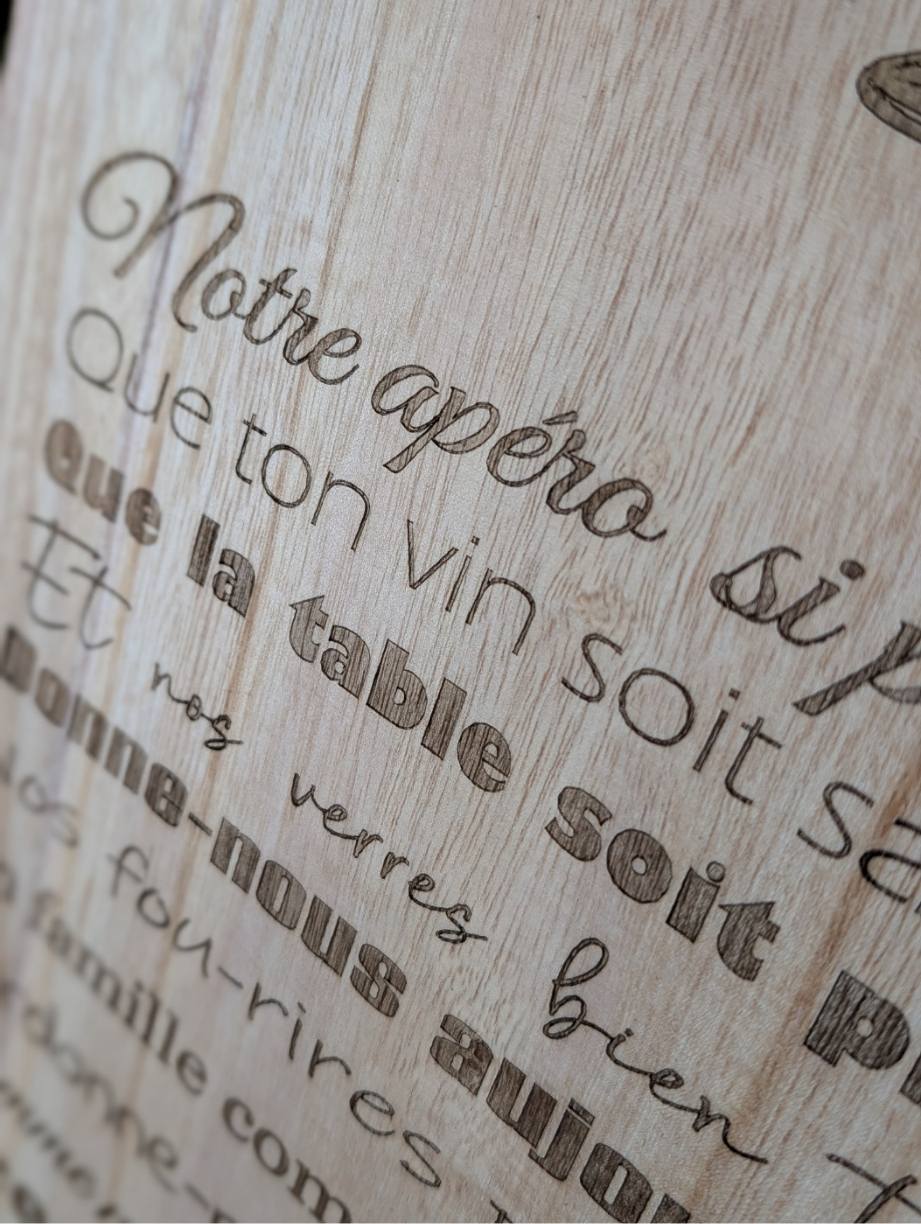 Notre apéro si p
Que ton vin soit sa
Que la table soit p
Et nos verres bien
Donne-nous aujou
fou-rires
famille com
donne-